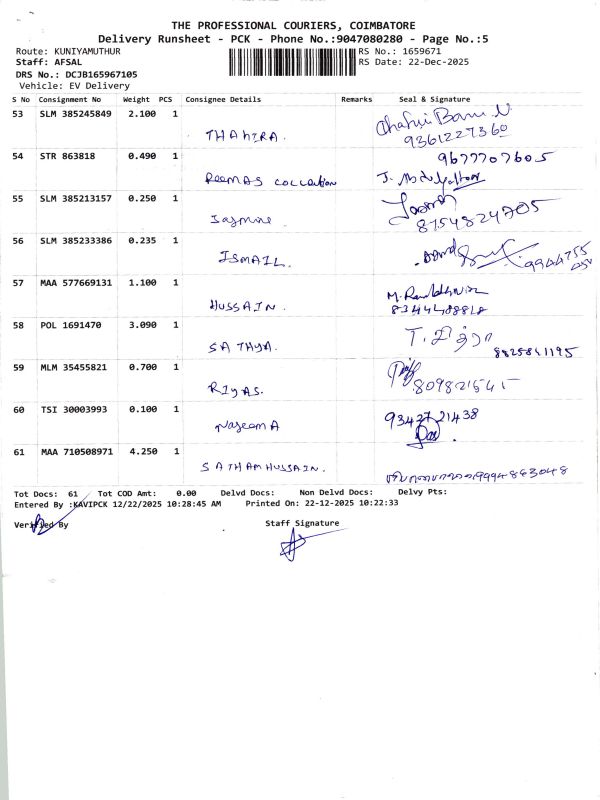 THE PROFESSIONAL COURIERS, COIMBATORE
Delivery Runsheet - PCK - Phone No.:9047080280 - Page No.:5
Route: KUNIYAMUTHUR RS No.: 1659671
Staff: AFSAL RS Date: 22-Dec-2025
DRS No.: DCJB165967105
Vehicle: EV Delivery
S No Consignment No Weight PCS Consignee Details Remarks Seal & Signature
53 SLM 385245849 2.100 1
THAHIRA. 9361227360
54 STR 863818 0.490 1 9677707605
REEMAS COLLECTION
55 SLM 385213157 0.250 1
Jasmine 8754824705
56 SLM 385233386 0.235 1
ISMAIL.
57 MAA 577669131 1.100 1
HUSSAIN. 8344488818
58 POL 1691470 3.090 1
SATHYA. 8825841195
59 MLM 35455821 0.700 1
RIYAS.
60 TSI 30003993 0.100 1 9342721438
Nazeema
61 MAA 710508971 4.250 1
SATHAM HUSSAIN. 9994883048
Tot Docs: 61 Tot COD Amt: 0.00 Delvd Docs: Non Delvd Docs: Delvy Pts:
Entered By :KAVIPCK 12/22/2025 10:28:45 AM Printed On: 22-12-2025 10:22:33
Verified By Staff Signature